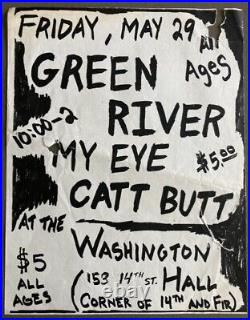 FRIDAY, MAY 29 All
Ages
GREEN
RIVER
10:00-2
MY EYE
$5.00
CATT BUTT
AT THE
WASHINGTON
HALL
(153 14TH ST.
CORNER OF 14TH AND FIR)
$5
ALL
AGES